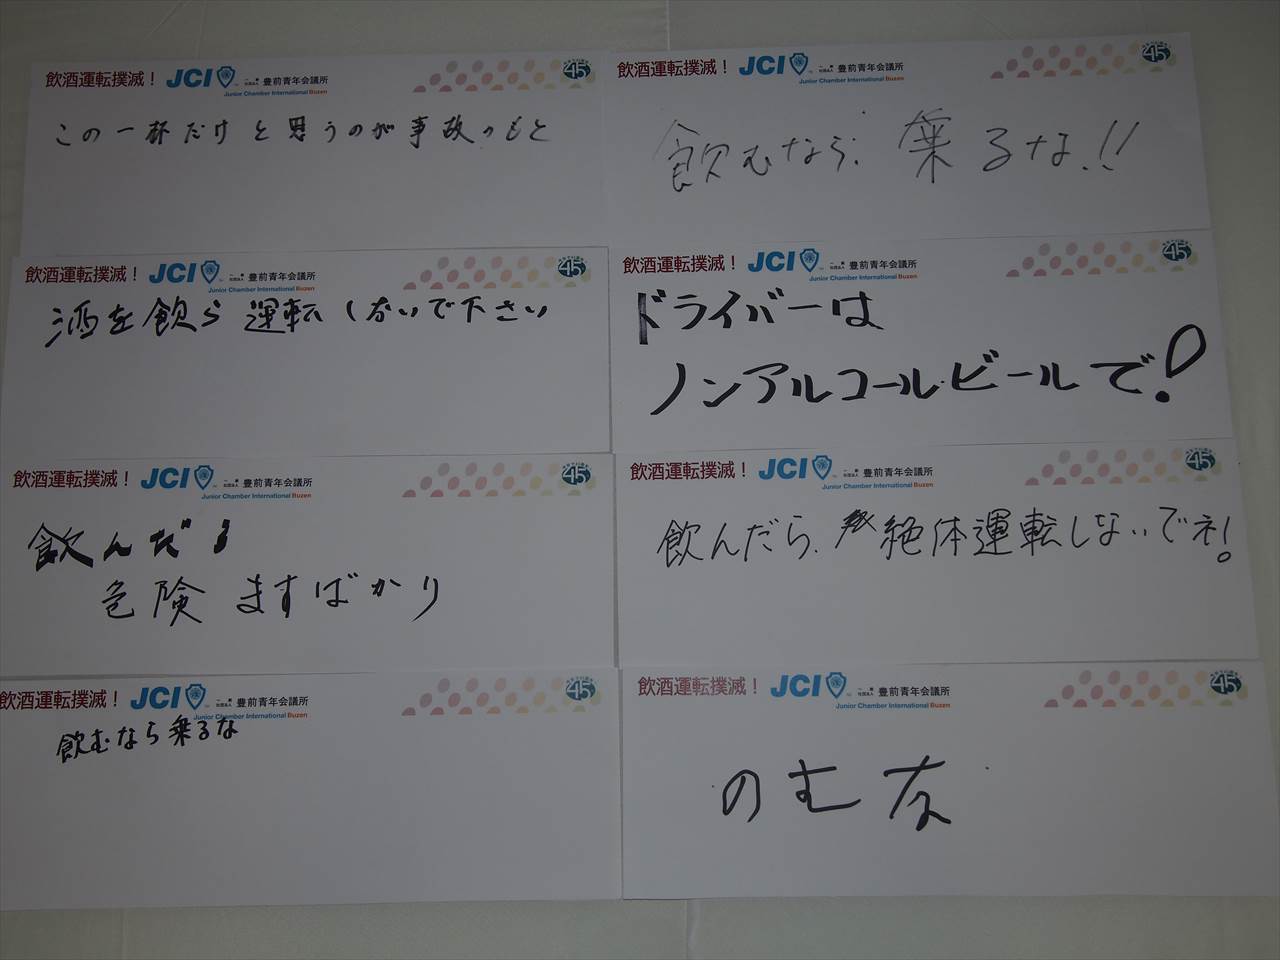 飲酒運転撲滅! JCI 一般社団法人 豊前青年会議所
Junior Chamber International Buzen
45
この一杯だけと思うのが事故のもと
飲酒運転撲滅! JCI 一般社団法人 豊前青年会議所
Junior Chamber International Buzen
45
飲むなら、乗るな!!
飲酒運転撲滅! JCI 一般社団法人 豊前青年会議所
Junior Chamber International Buzen
45
酒を飲ら運転しないで下さい
飲酒運転撲滅! JCI 一般社団法人 豊前青年会議所
Junior Chamber International Buzen
45
ドライバーは
ノンアルコールビールで!
飲酒運転撲滅! JCI 一般社団法人 豊前青年会議所
Junior Chamber International Buzen
45
飲んだら
危険ますばかり
飲酒運転撲滅! JCI 一般社団法人 豊前青年会議所
Junior Chamber International Buzen
45
飲んだら、絶体運転しないでネ!
飲酒運転撲滅! JCI 一般社団法人 豊前青年会議所
Junior Chamber International Buzen
45
飲むなら乗るな
飲酒運転撲滅! JCI 一般社団法人 豊前青年会議所
Junior Chamber International Buzen
45
のむな